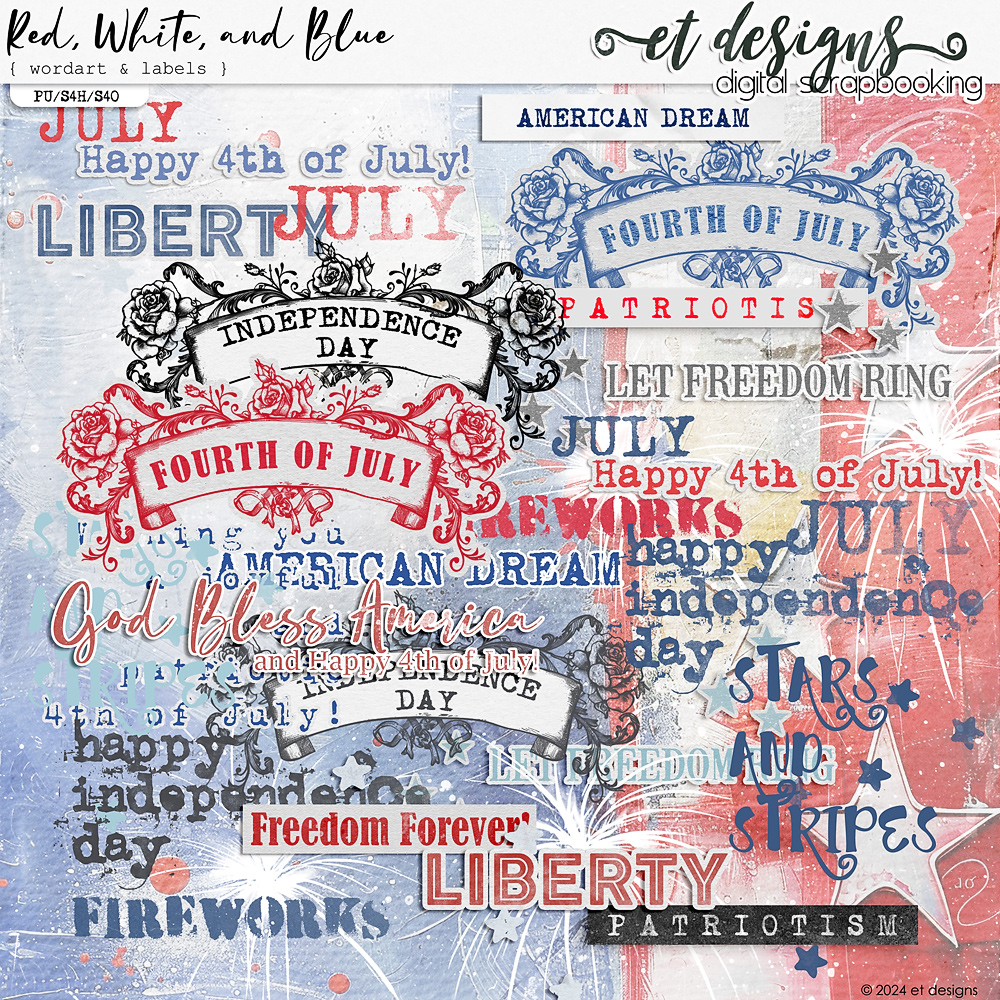 Red, White, and Blue
{ wordart & labels }
PU/S4H/S4O
et designs
digital scrapbooking
JULY
Happy 4th of July!
LIBERTY
JULY
AMERICAN DREAM
FOURTH OF JULY
INDEPENDENCE
DAY
PATRIOTIS
LET FREEDOM RING
FOURTH OF JULY
JULY
Happy 4th of July!
FIREWORKS
JULY
happy
independence
day
Wishing you
a joyful
AMERICAN DREAM
God Bless America
and Happy 4th of July!
4th of July!
INDEPENDENCE
DAY
STARS
AND
STRIPES
STARS
AND
STRIPES
LET FREEDOM RING
happy
independence
day
Freedom Forever'
LIBERTY
PATRIOTISM
FIREWORKS
© 2024 et designs